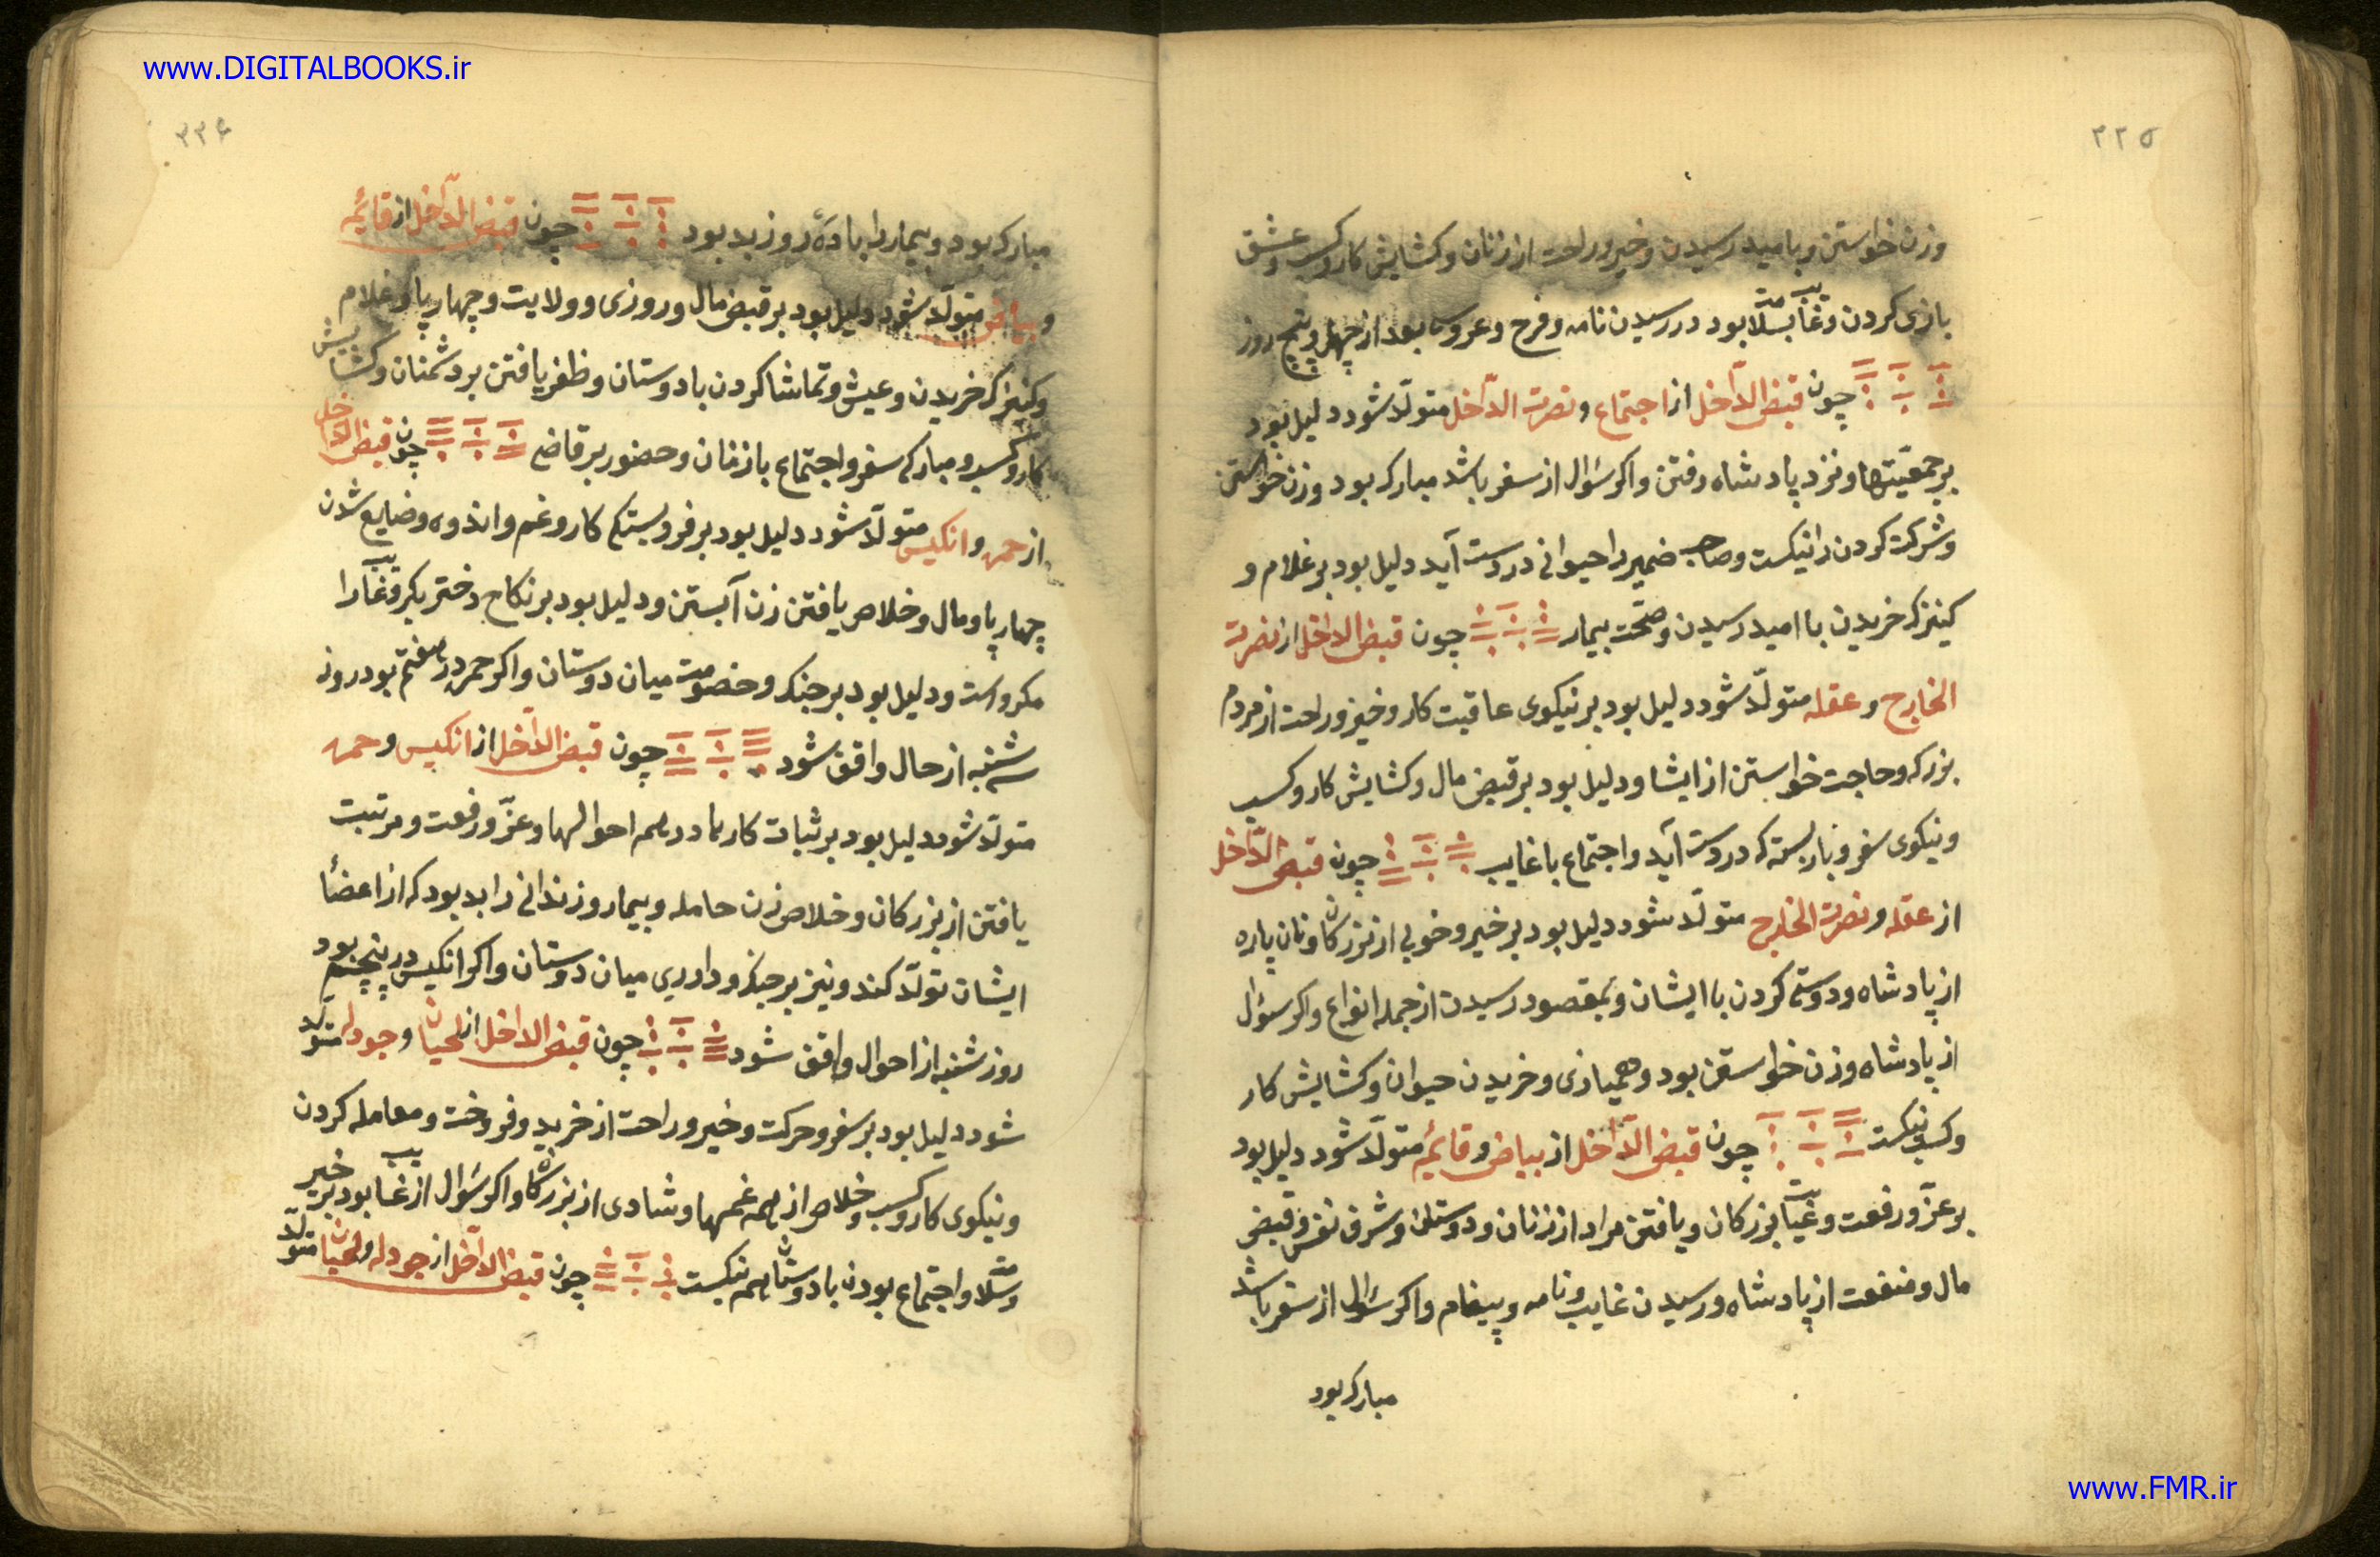 www.DIGITALBOOKS.ir
۲۲۵
وزن خواستن و بامید رسیدن و خیر و راحت از زنان و کشایش کار و کسب و عشق
بازی کردن و غایب بسلامت بود در رسیدن نامه و فرح و عروسی بعد از چهل و پنج روز
چون قبض الدّاخل از اجتماع و نصرت الدّاخل متولّد شود دلیل بود
بر جمعیّتها و نزد پادشاه رفتن و اکر سؤال از سفر باشد مبارک بود و زن خواستن
و شرکت کردن را نیکست و صاحب ضمیر را حیوانی در دست آید دلیل بود بر غلام و
کنیزک خریدن با امید رسیدن و صحّت بیمار چون قبض الداخل از نصرت
الخارج و عقله متولّد شود دلیل بود بر نیکوی عاقبت کار و خیر و راحت از مردم
بزرک و حاجت خواستن از ایشا و دلیل بود بر قبض مال و کشایش کار و کسب
و نیکوی سفر و بار بسته که در دست آید و اجتماع با غایب چون قبض الدّاخل
از عقله و نصرت الخارج متولّد شود دلیل بود بر خیر و خوبی از بزرکان و نان پاره
از پادشاه و دوستی کردن با ایشان و بمقصود رسیدن از جمله انواع و اکر سؤال
از پادشاه و زن خواستن بود و همبازی و خریدن حیوان و کشایش کار
و کسب نیکست چون قبض الدّاخل از بیاض و قایمه متولّد شود دلیل بود
بر عزّ و رفعت و غیبت بزرکان و یافتن مراد از زنان و دوستان و شرف نفس و قبض
مال و منفعت از پادشاه و رسیدن غایب و نامه و پیغام و اکر سؤال از سفر باشد
مبارک بود
۲۲۶
مبارک بود و بیمار را با ده روز بد بود چون قبض الدّاخل از قایمه
و بیاض متولّد شود دلیل بود بر قبض مال و روزی و ولایت و چهارپا و غلام
و کنیزک خریدن و عیش و تماشا کردن با دوستان و ظفر یافتن بر دشمنان و کشایش
کار و کسب و مبارکی سفر و اجتماع با زنان و حضور بر قاضی چون قبض الداخل
از حمره و انکیس متولّد شود دلیل بود بر فروبستکی کار و غم و اندوه و ضایع شدن
چهارپا و مال و خلاص یافتن زن آبستن و دلیل بود بر نکاح دختر بکر و غایب را
مکروه است و دلیل بود بر جنک و خصومت میان دوستان و اکر حمره در هفتم بود روز
سه شنبه از حال واقف شود چون قبض الدّاخل از انکیس و حمره
متولّد شود دلیل بود بر ثبات کارها و در همه احوالها و عزّ و رفعت و مرتبت
یافتن از بزرکان و خلاص زن حامله و بیمار و زندانی را بد بود که از اعضأ
ایشان تولّد کند و نیز بر جنک و داوری میان دوستان و اکر انکیس در پنجم بود
روز شنبه از احوال واقف شود چون قبض الداخل از لحیان و جودله متولّد
شود دلیل بود بر سفر و حرکت و خیر و راحت از خرید و فروخت و معامله کردن
و نیکوی کار و کسب و خلاص از همه غمها و شادی از بزرکان و اکر سؤال از غایب بود بر خیر
و سلامت و اجتماع بودن با دوستان هم نیکست چون قبض الدّاخل از جودله و لحیان متولّد
www.FMR.ir